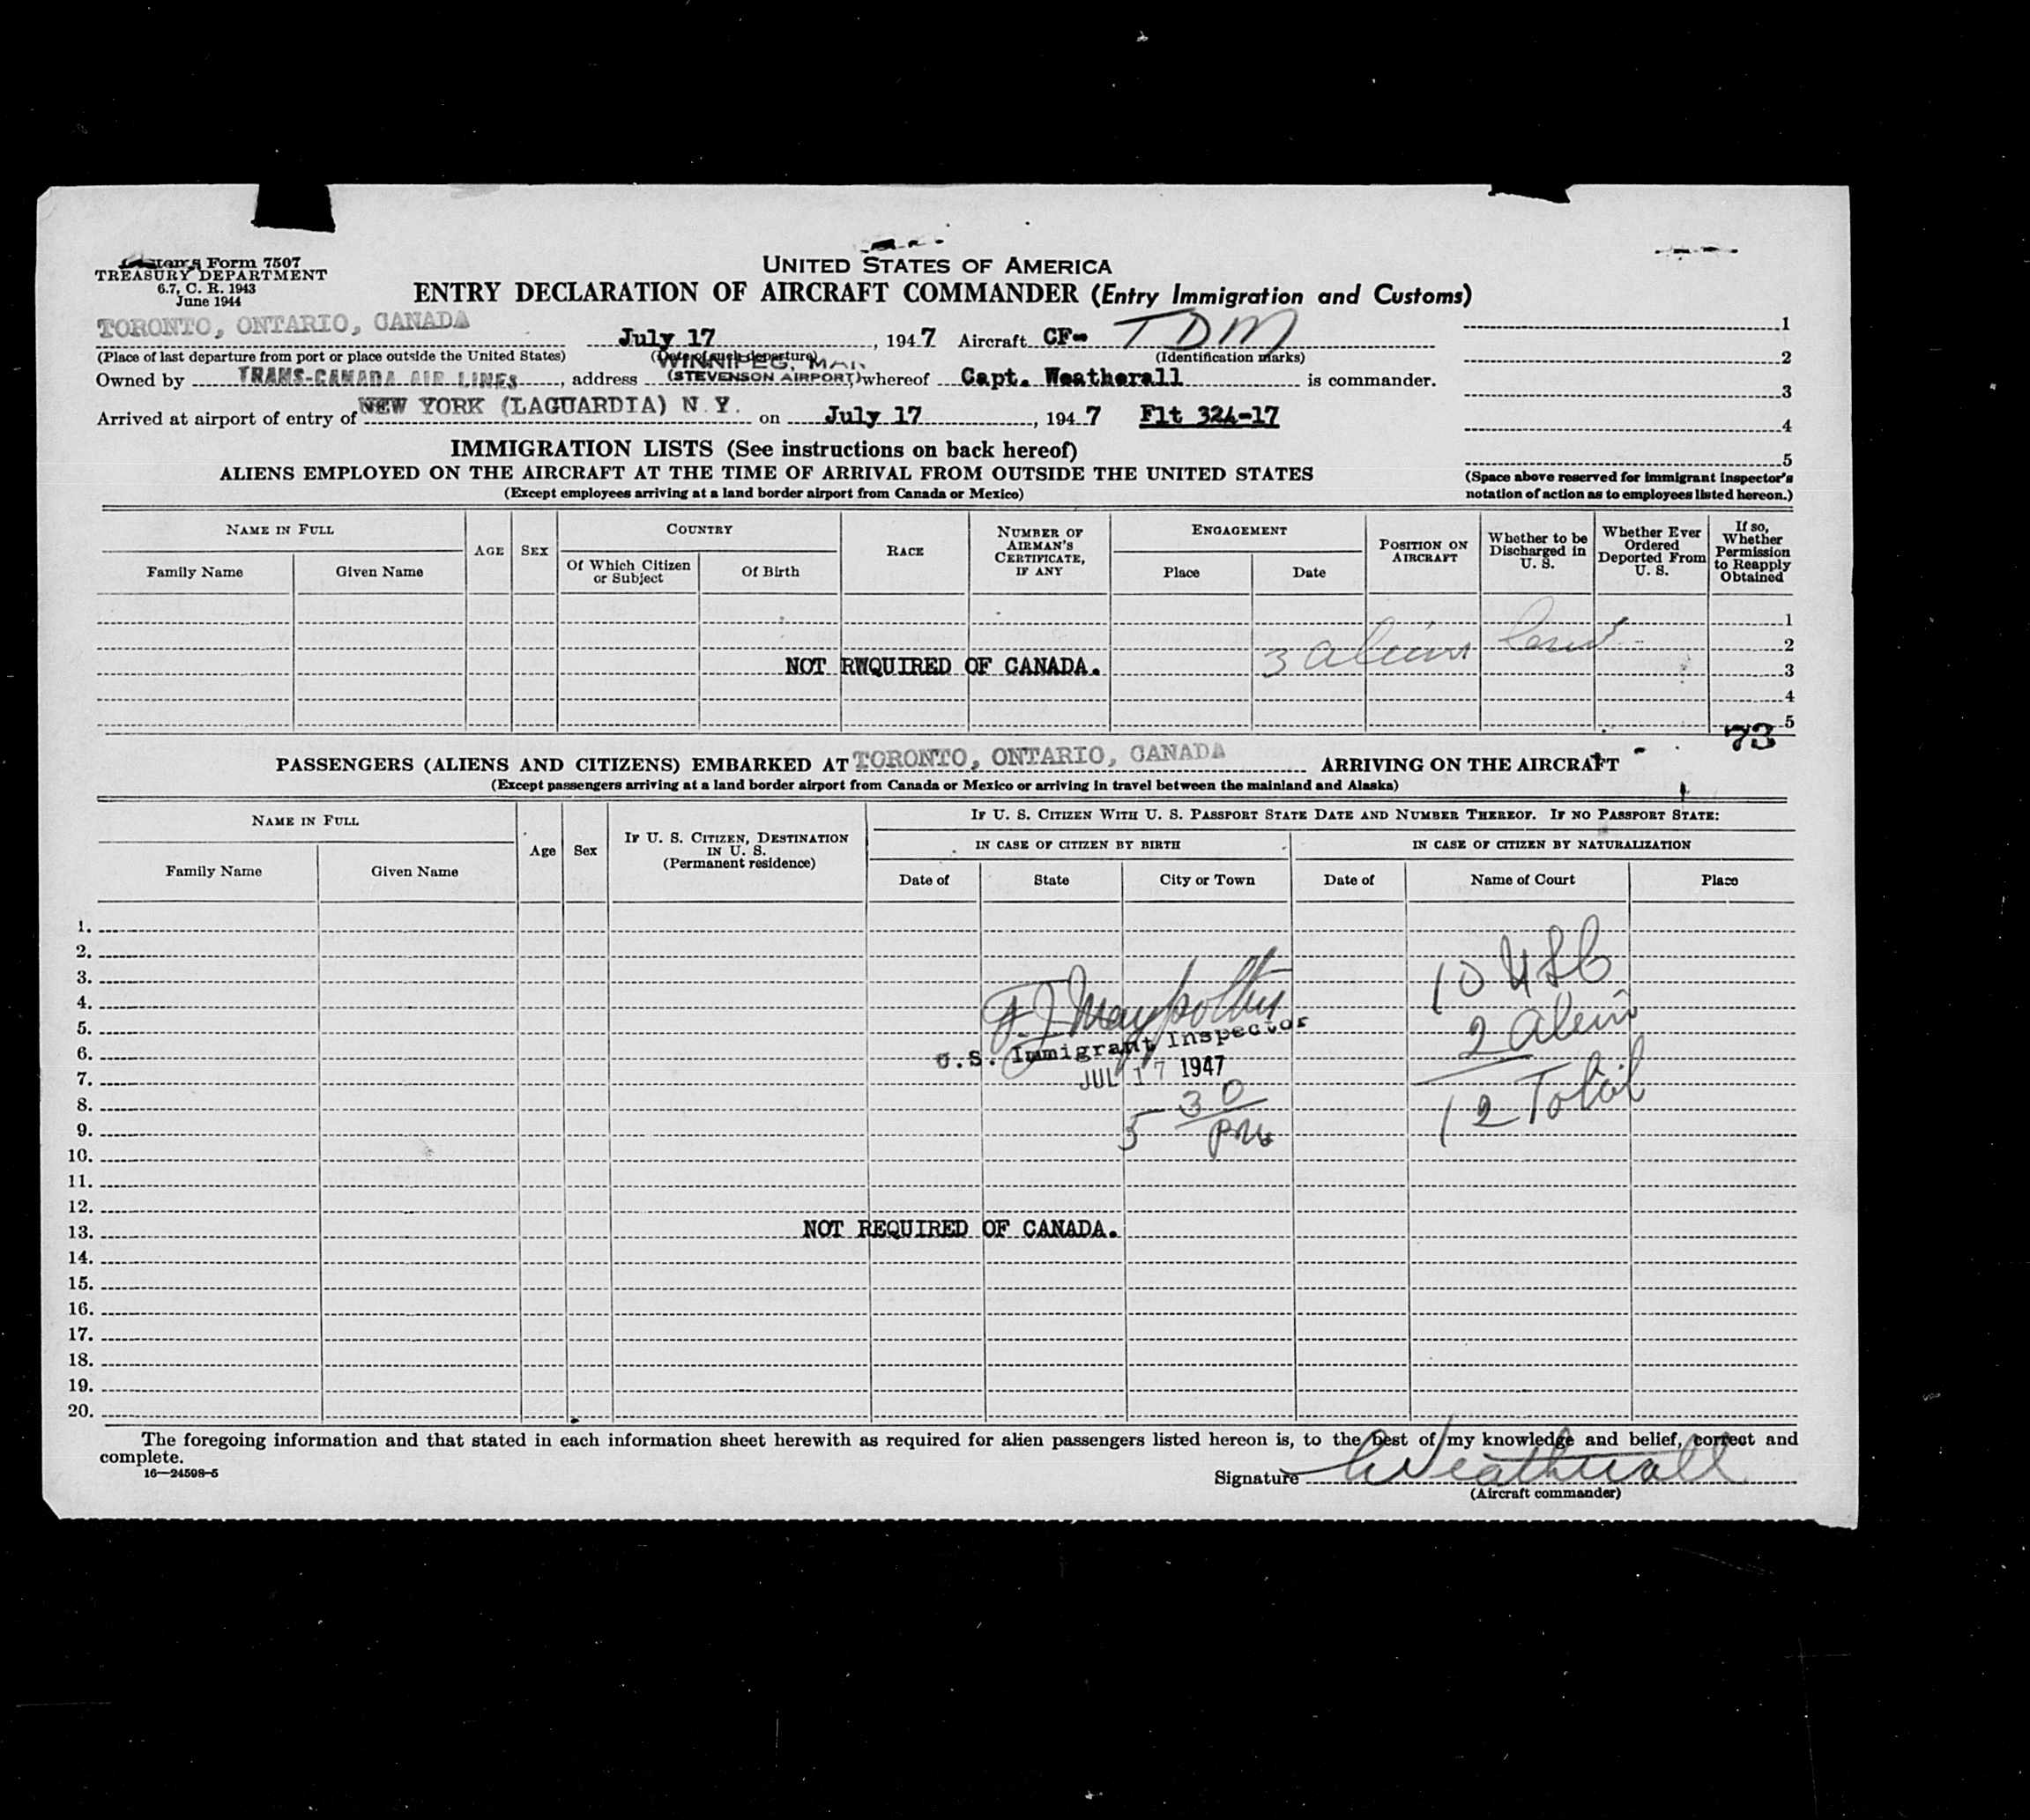 Customs Form 7507
TREASURY DEPARTMENT
6.7, C. R. 1943
June 1944
UNITED STATES OF AMERICA
ENTRY DECLARATION OF AIRCRAFT COMMANDER (Entry Immigration and Customs)
TORONTO, ONTARIO, CANADA July 17, 1947 Aircraft CF- TDM
(Place of last departure from port or place outside the United States) (Date of such departure) (Identification marks)
WINNIPEG, MAN
Owned by TRANS-CANADA AIR LINES, address (STEVENSON AIRPORT) whereof Capt. Weatherall is commander.
Arrived at airport of entry of NEW YORK (LAGUARDIA) N.Y. on July 17, 1947 Flt 324-17
1
2
3
4
5
(Space above reserved for immigrant inspector's
notation of action as to employees listed hereon.)
IMMIGRATION LISTS (See instructions on back hereof)
ALIENS EMPLOYED ON THE AIRCRAFT AT THE TIME OF ARRIVAL FROM OUTSIDE THE UNITED STATES
(Except employees arriving at a land border airport from Canada or Mexico)
NAME IN FULL
Family Name Given Name
AGE SEX
COUNTRY
Of Which Citizen or Subject
Of Birth
RACE
NUMBER OF AIRMAN'S CERTIFICATE, IF ANY
ENGAGEMENT
Place Date
POSITION ON AIRCRAFT
Whether to be Discharged in U. S.
Whether Ever Ordered Deported From U. S.
If so, Whether Permission to Reapply Obtained
1
2
3 aliens
NOT RWQUIRED OF CANADA.
3
4
5
73
PASSENGERS (ALIENS AND CITIZENS) EMBARKED AT TORONTO, ONTARIO, CANADA ARRIVING ON THE AIRCRAFT
(Except passengers arriving at a land border airport from Canada or Mexico or arriving in travel between the mainland and Alaska)
NAME IN FULL
Family Name Given Name
Age Sex
IF U. S. CITIZEN, DESTINATION IN U. S.
(Permanent residence)
IF U. S. CITIZEN WITH U. S. PASSPORT STATE DATE AND NUMBER THEREOF. IF NO PASSPORT STATE:
IN CASE OF CITIZEN BY BIRTH IN CASE OF CITIZEN BY NATURALIZATION
Date of State City or Town Date of Name of Court Place
1.
2.
3. 10 USC
4.
5. 2 Alein
6. U.S. Immigrant Inspector
7. JUL 17 1947
8. 5 30 12 Total
9. PM
10.
11.
12.
13. NOT REQUIRED OF CANADA.
14.
15.
16.
17.
18.
19.
20.
The foregoing information and that stated in each information sheet herewith as required for alien passengers listed hereon is, to the best of my knowledge and belief, correct and
complete.
16—24598-5
Signature Weatherall
(Aircraft commander)